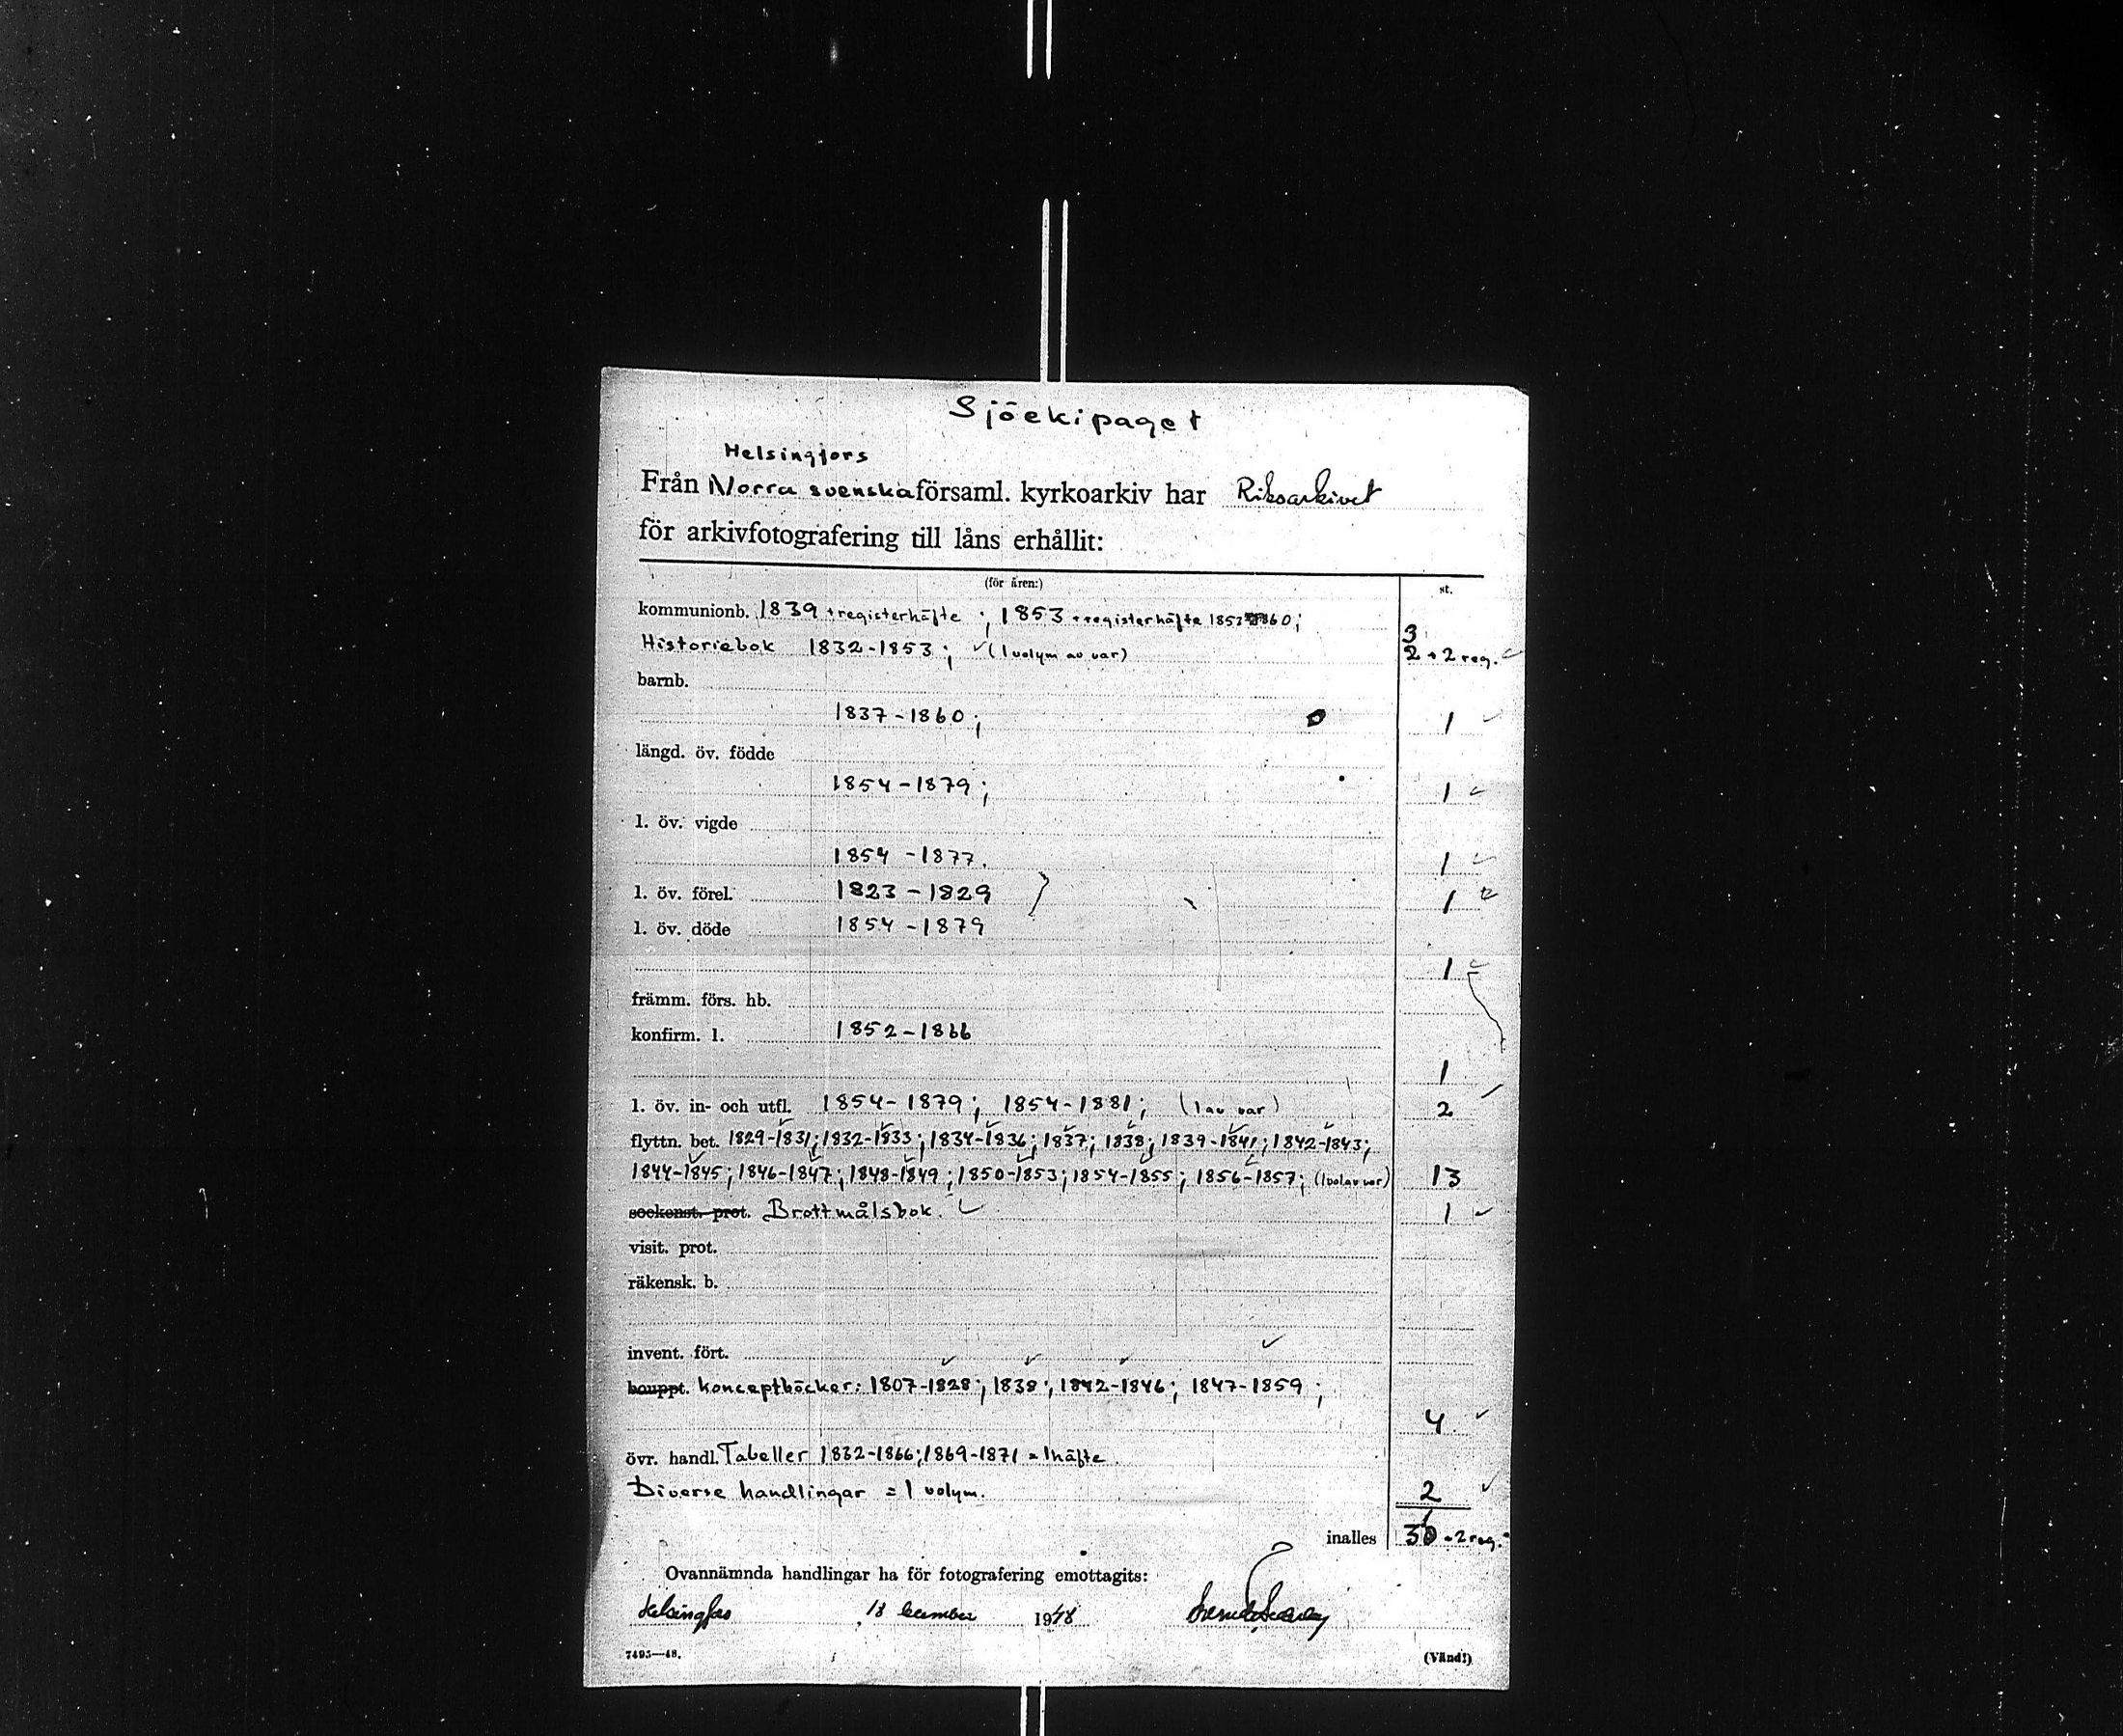 Sjöekipaget
Helsingfors
Från Norra svenska församl. kyrkoarkiv har Riksarkivet
för arkivfotografering till låns erhållit:
(för åren:) st.
kommunionb. 1839 + registerhäfte ; 1853 + registerhäfte 1853-1860;
3
Historiebok 1832-1853 ; ✓ (1 volym av var) 2 + 2 reg. ✓
barnb.
1837-1860 ; 1 ✓
längd. öv. födde
1854-1879 ; 1 ✓
l. öv. vigde
1854-1877. 1 ✓
l. öv. förel. 1823-1829 1 ✓
l. öv. döde 1854-1879
1 ✓
främm. förs. hb.
konfirm. l. 1852-1866
1
l. öv. in- och utfl. 1854-1879 ; 1854-1881 ; (1 av var) 2 ✓
flyttn. bet. 1829-1831; 1832-1833; 1834-1836; 1837; 1838; 1839-1841; 1842-1843;
1844-1845; 1846-1847; 1848-1849; 1850-1853; 1854-1855; 1856-1857; (1 vol av var) 13
sockenst. prot. Brottmålsbok. ✓ 1 ✓
visit. prot.
räkensk. b.
invent. fört.
bouppt. konceptböcker: 1807-1828; 1838; 1842-1846; 1847-1859 ;
4 ✓
övr. handl. Tabeller 1832-1866; 1869-1871 = 1 häfte
Diverse handlingar = 1 volym. 2 ✓
inalles 31 + 2 reg.
Ovannämnda handlingar ha för fotografering emottagits:
Helsingfors, 18 december 1948
7495—48. (Vänd!)